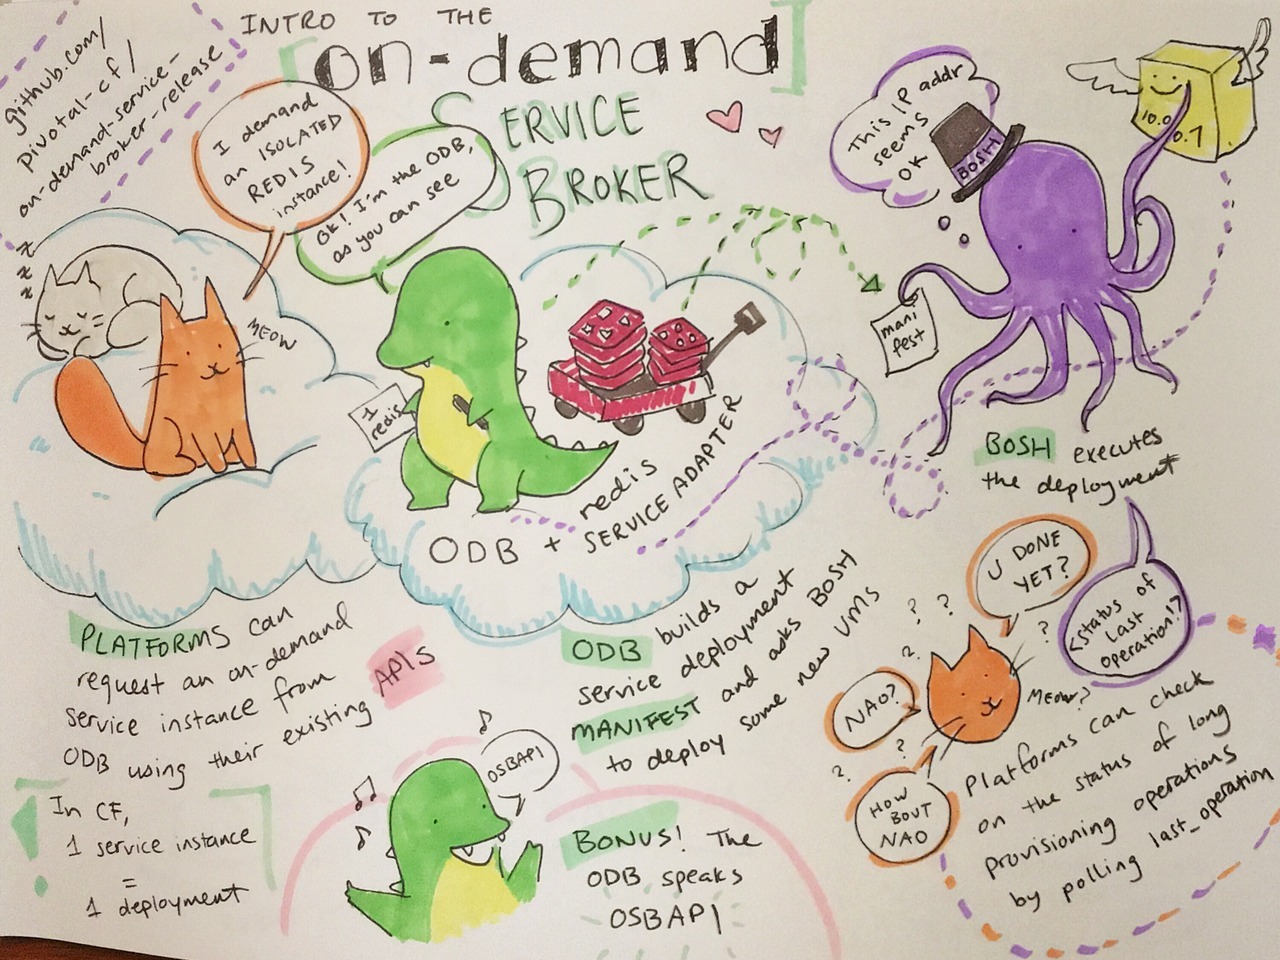 github.com/
pivotal-cf/
on-demand-service-
broker-release
INTRO TO THE
[on-demand]
SERVICE
BROKER
I demand
an ISOLATED
REDIS
instance!
Ok! I'm the ODB,
as you can see
This IP addr
seems
OK
BOSH
10.0
0.1
z
z
z
MEOW
1
redis
mani
fest
redis
ODB + SERVICE ADAPTER
BOSH executes
the deployment
PLATFORMS can
request an on-demand
service instance from
ODB using their existing APIs
In CF,
1 service instance
=
1 deployment
ODB builds a
service deployment
MANIFEST and asks BOSH
to deploy some new VMs
OSBAPI
BONUS! The
ODB speaks
OSBAPI
U DONE
YET?
<status of
last
operation!?
?
?
?
?
?
?
NAO?
MEOW?
HOW
BOUT
NAO
Platforms can check
on the status of long
provisioning operations
by polling last_operation